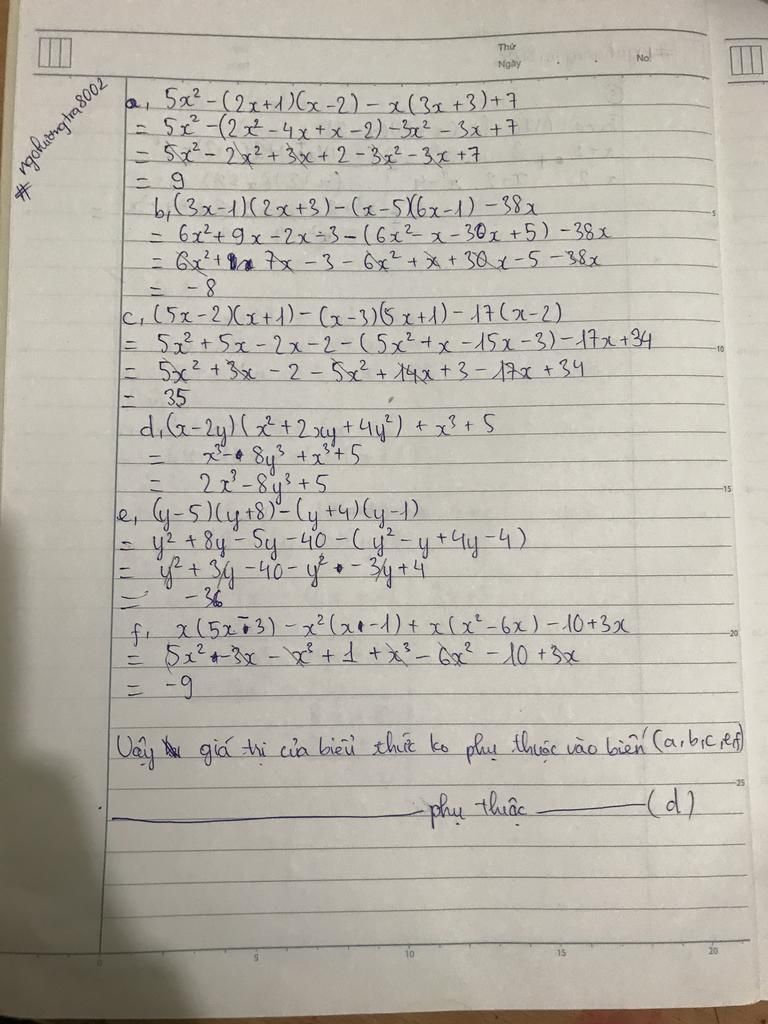 Thứ
Ngày . . No:
# ngohuongtra8002
a, 5x² - (2x+1)(x-2) - x(3x+3)+7
= 5x² - (2x² - 4x + x - 2) - 3x² - 3x + 7
= 5x² - 2x² + 3x + 2 - 3x² - 3x + 7
= 9
b, (3x-1)(2x+3) - (x-5)(6x-1) - 38x
= 6x² + 9x - 2x - 3 - (6x² - x - 30x + 5) - 38x
= 6x² + 7x - 3 - 6x² + x + 30x - 5 - 38x
= -8
c, (5x-2)(x+1) - (x-3)(5x+1) - 17(x-2)
= 5x² + 5x - 2x - 2 - (5x² + x - 15x - 3) - 17x + 34
= 5x² + 3x - 2 - 5x² + 14x + 3 - 17x + 34
= 35
d, (x-2y)(x² + 2xy + 4y²) + x³ + 5
= x³ - 8y³ + x³ + 5
= 2x³ - 8y³ + 5
e, (y-5)(y+8) - (y+4)(y-1)
= y² + 8y - 5y - 40 - (y² - y + 4y - 4)
= y² + 3y - 40 - y² - 3y + 4
= -36
f, x(5x-3) - x²(x-1) + x(x² - 6x) - 10 + 3x
= 5x² - 3x - x³ + 1 + x³ - 6x² - 10 + 3x
= -9
Vậy giá trị của biểu thức ko phụ thuộc vào biến (a,b,c,e,f)
phụ thuộc (d)
5
10
15
20
25
0 5 10 15 20